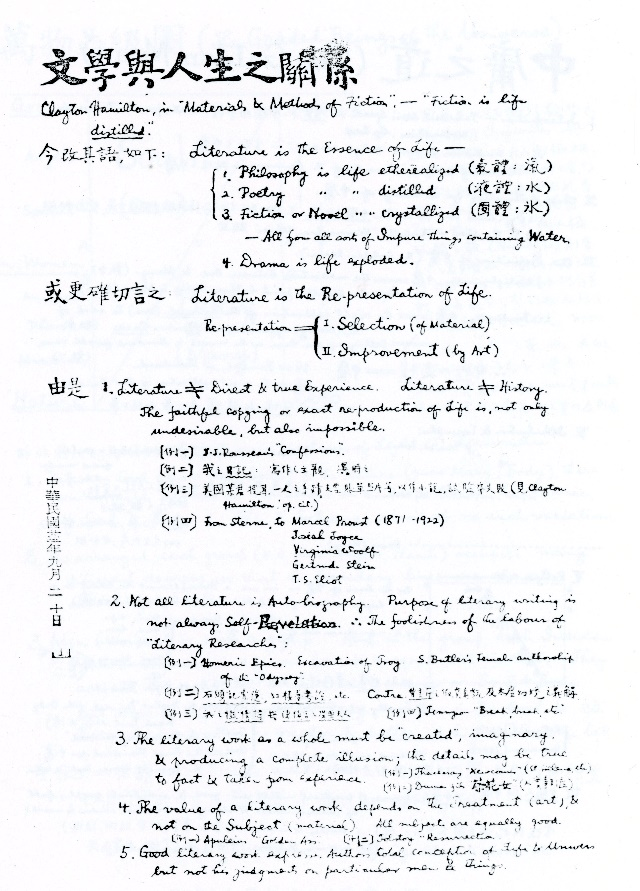 文學與人生之關係
Clayton Hamilton, in "Materials & Methods of Fiction". — "Fiction is life
distilled.
今改其語,如下: Literature is the Essence of Life —
1. Philosophy is life etherealized (氣體:汽)
2. Poetry " " distilled (液體:水)
3. Fiction or Novel " " crystallized (固體:氷)
— All from all sorts of Impure things containing Water.
4. Drama is life exploded.
或更確切言之: Literature is the Re-presentation of Life.
Re-presentation = I. Selection (of Material)
II. Improvement (by Art)
由是 1. Literature ≠ Direct & true Experience. Literature ≠ History.
The faithful copying or exact re-production of Life is, not only
undesirable, but also impossible.
[例一] J.J. Rousseau's "Confessions".
[例二] 我之日記:
[例三] 美國某 (見 Clayton
Hamilton, op. cit.)
[例四] From Sterne, to Marcel Proust (1871-1922)
Joyce
Virginia Woolf
Gertrude Stein
T.S. Eliot
2. Not all literature is Auto-biography. Purpose of literary writing is
not always Self-Revelation. ∴ The foolishness of the labour of
"Literary Researches":
[例一] Homeric Epics. Excavation of Troy S. Butler's Female authorship
of the "Odyssey"
[例二] 石頭記 etc. Contra
[例三] [例四] Tennyson "Break, break, etc"
3. The literary work as a whole must be "created", imaginary,
& producing a complete illusion; the details may be true
to fact & taken from experience. [例一] Thackeray
[例二] Dumas fils 茶花女
4. The value of a literary work depends on the Treatment (art), &
not on the Subject (material) All subjects are equally good.
[例一] Apuleius "Golden Ass" [例二] Tolstoy "Resurrection"
5. Good literary work expresses Author's total conception of Life & Universe
but not his judgment on particular men & things.
中華民國 年九月二十日